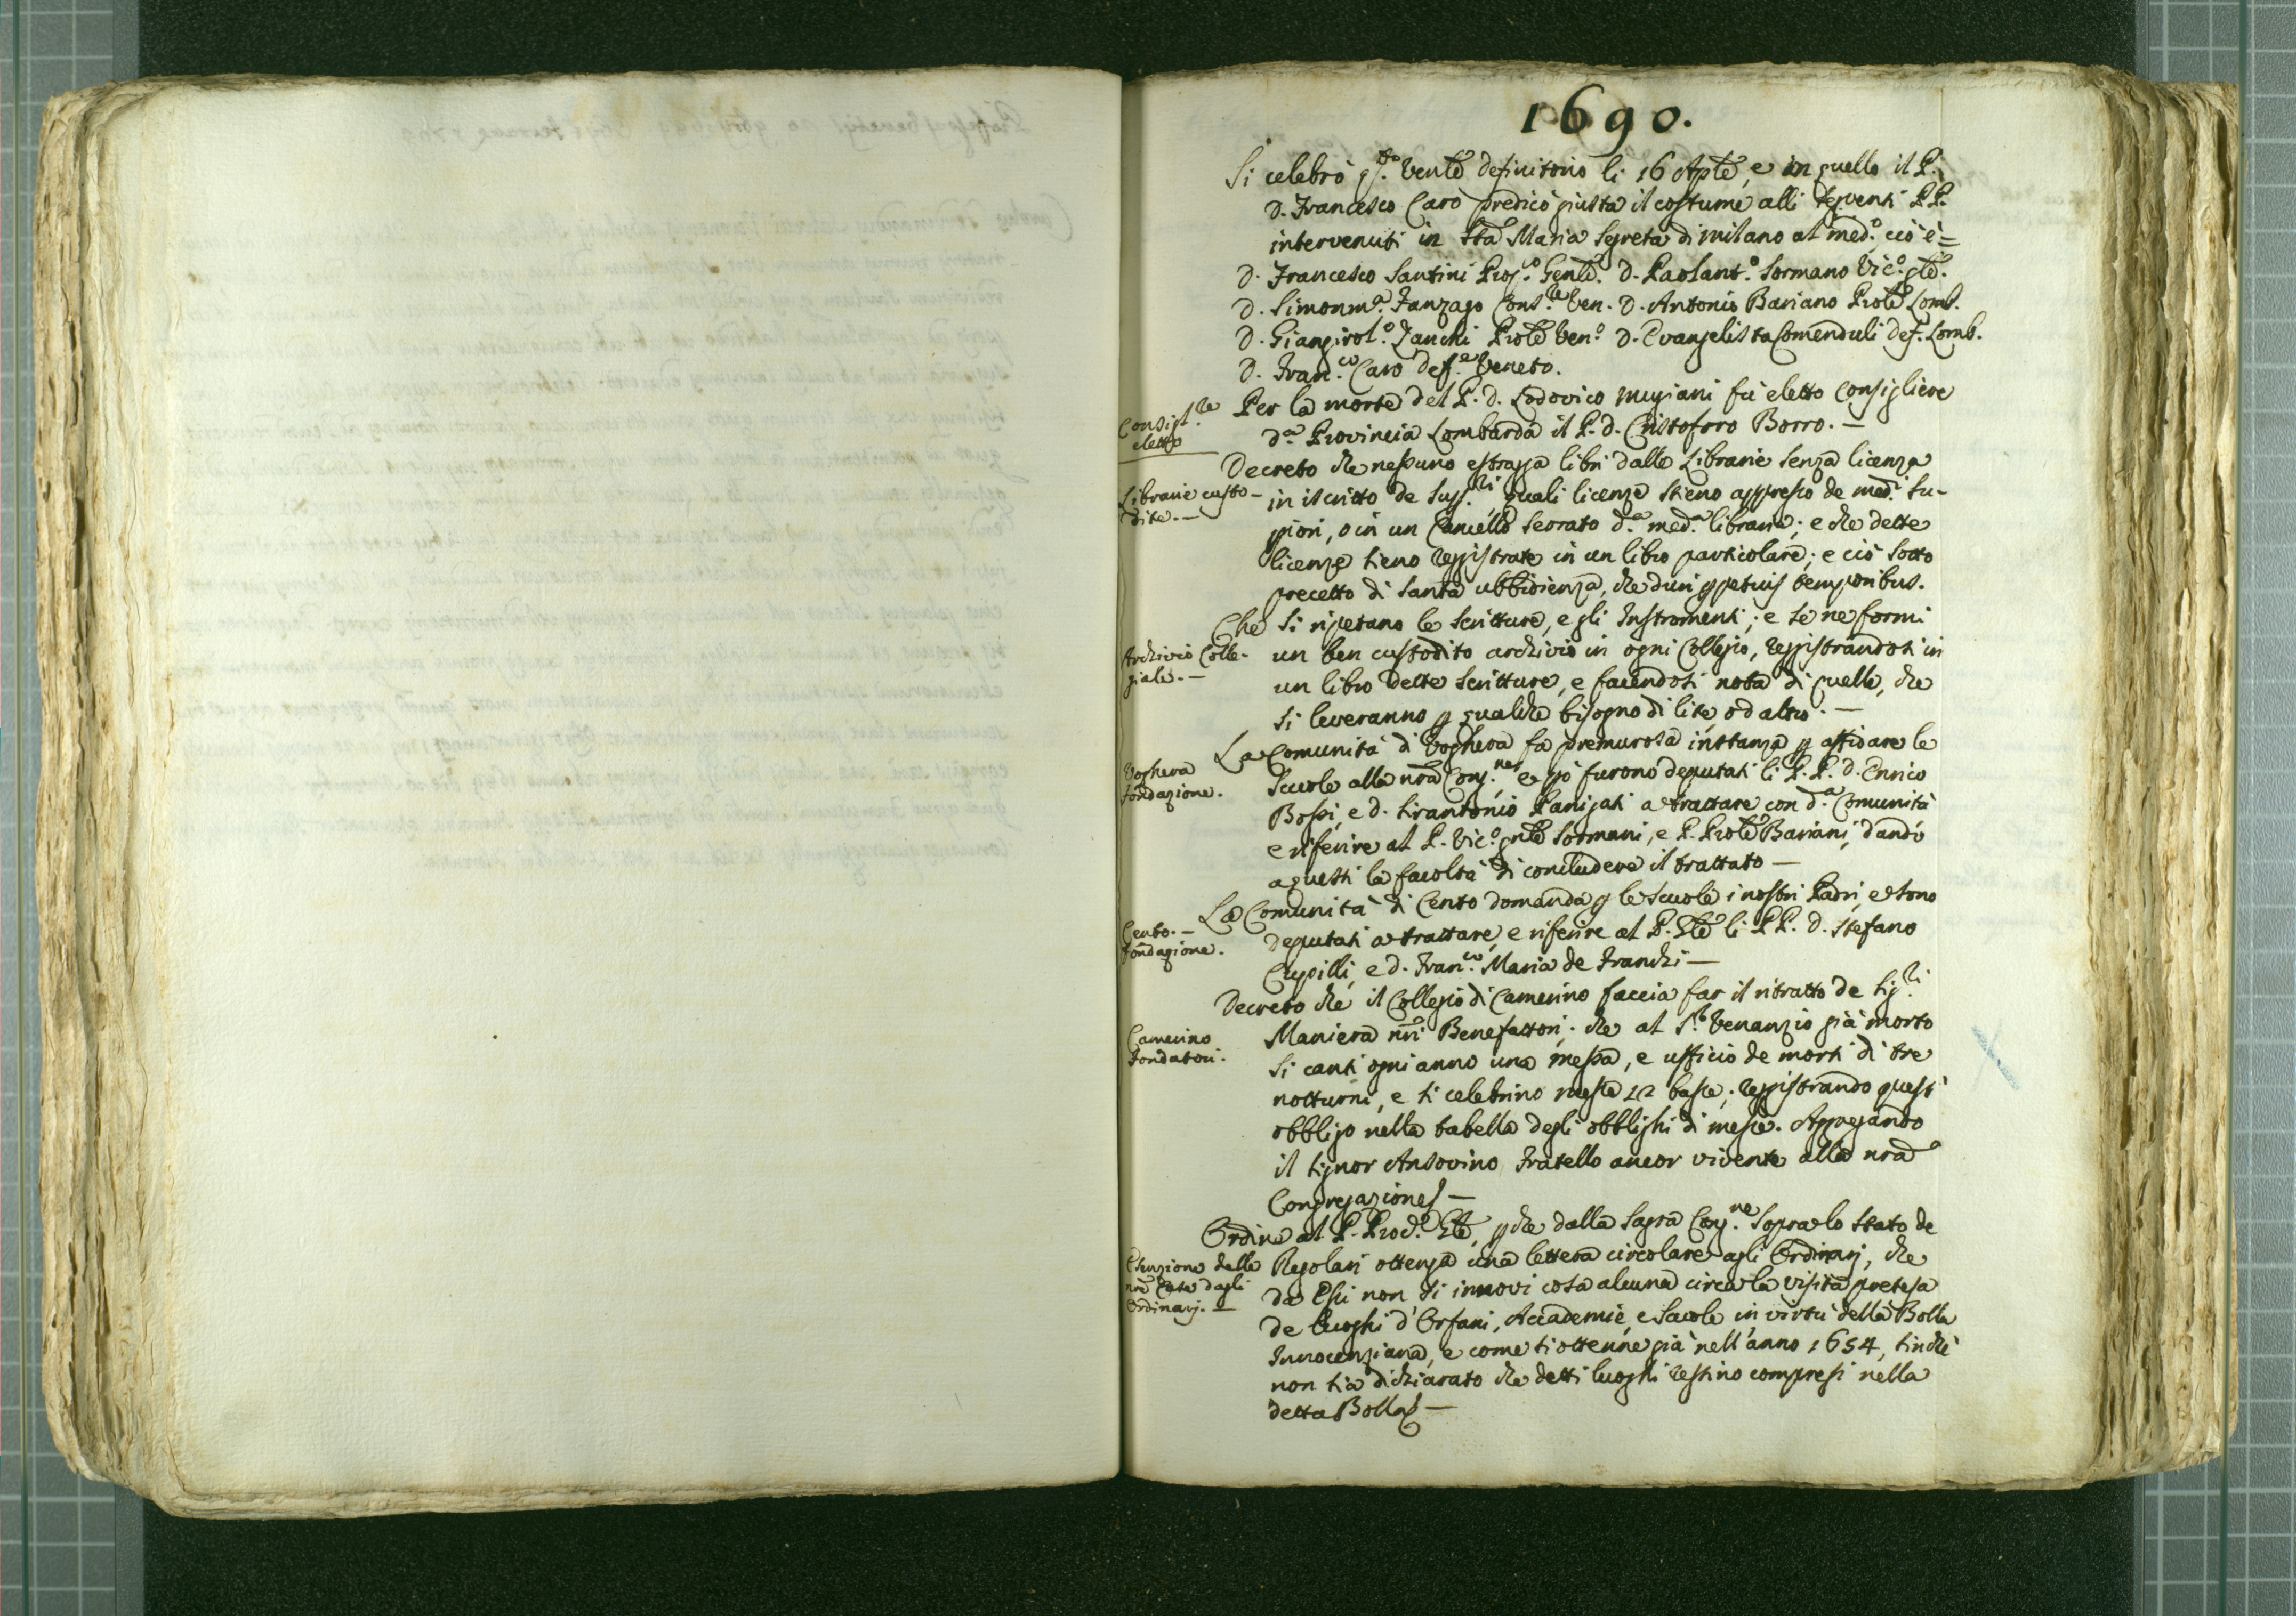 1690.
Si celebrò q.to Venle definitorio li 16 Aple, e in quello il P.
D. Francesco Caro predicò giusta il costume alli seguenti PP.
intervenuti in Sta Maria Segreta di Milano al med.o ciò è=
D. Francesco Santini Prop.o Genle. D. Paolant.o Sormano Vic.o gle.
D. Simonm.a Fanzago Cons.re Ven. D. Antonio Bariano Prole Lomb.
D. Giangirol.o Zanchi Prole Ven.o D. Evangelista Comenduli def. Lomb.
D. Fran.co Caro def.e Veneto.
Consigl.re
eletto
Per la morte del P. D. Lodovico Mugiani fù eletto Consigliere
d.a Provincia Lombarda il P. D. Cristoforo Borro. —
Librarie custo-
dite. —
Decreto che nessuno estragga libri dalle Librarie senza licenza
in iscritto de Sup.ri quali licenze stieno appresso de med.i Su-
piori, o in un Cancello serrato d.a med.a libraria; e che dette
licenze sieno reggistrate in un libro particolare; e ciò sotto
precetto di santa ubbidienza, che duri ppetuis temporibus.
Archivio Colle-
giale. —
Che si ripetano le scritture, e gli Instromenti; e se ne formi
un ben custodito archivio in ogni Collegio, reggistrandosi in
un libro dette scritture, e facendosi nota di quelle, che
si leveranno p qualche bisogno di lite, od altro. —
Voghera
fondazione.
La Comunità di Voghera fa premurosa instanza p affidare le
Scuole alla nra Cong.ne, e pò furono deputati li P.P. D. Enrico
Bossi, e D. Sirantonio Panigati a trattare con d.a Comunità
e riferire al P. Vic.o gnle Sormani, e P. Prole Bariani, dando
a questi la facoltà di concludere il trattato —
Cento. —
fondazione.
La Comunità di Cento domanda p le Scuole i nostri Padri, e sono
deputati a trattare, e riferire al P. Gle li PP. D. Stefano
Cupilli, e D. Fran.co Maria de Franchi —
Camerino
fondatori.
Decreto che il Collegio di Camerino faccia far il ritratto de Sig.ri
Maniera nri Benefattori; che al S.r Venanzio già morto
si canti ogni anno una messa, e ufficio de morti di tre
notturni, e si celebrino messe 12 basse; reggistrando questi
obbligo nella tabella degli obblighi di messe. Aggregando
il Signor Ansovino Fratello ancor vivente alla nra
Congregazione —
Esenzione delle
nre Case dagli
Ordinarj. —
Ordine al P. Proc.e Gle, p che dalla Sagra Cong.ne sopra lo stato de
Regolari ottenga una lettera circolare agli Ordinarj, che
da Essi non si innovi cosa alcuna circa la visita pretesa
de luoghi d'Orfani, Accademie, e Scuole in virtù della Bolla
Innocenziana, e come si ottenne già nell'anno 1654, sinche
non sia dichiarato che detti luoghi restino compresi nella
detta Bolla —